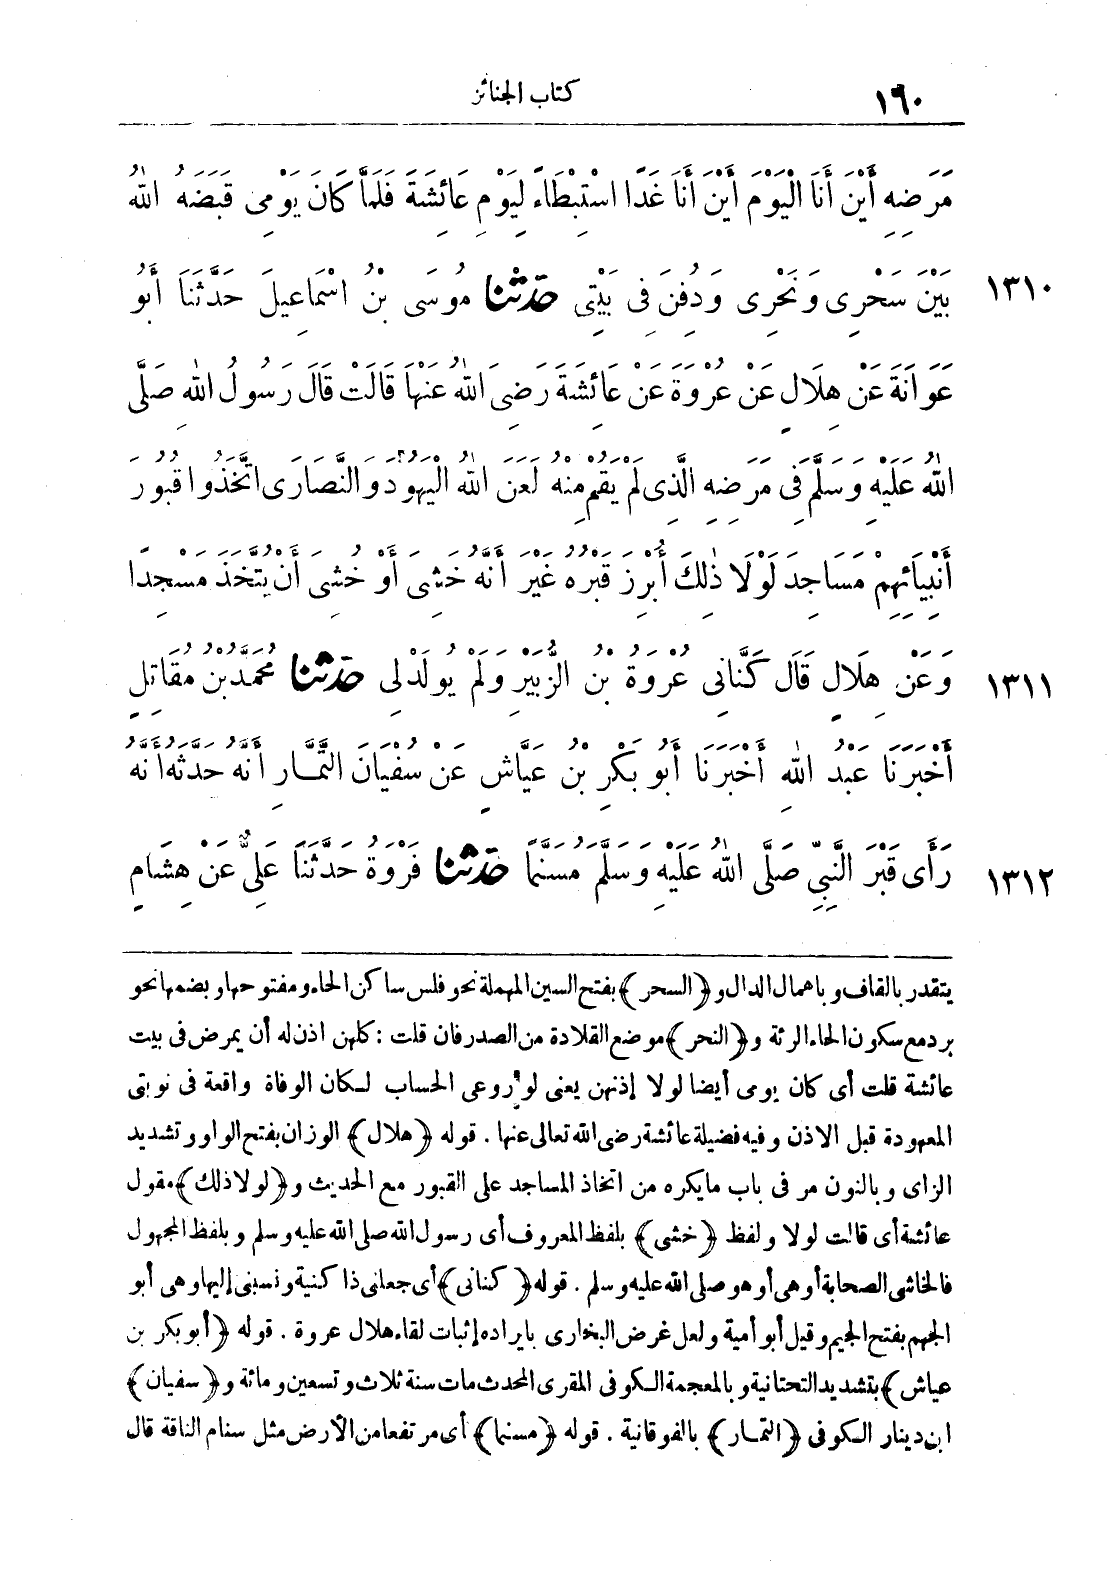 ١٦٠ كتاب الجنائز
مَرَضِهِ أَيْنَ أَنَا الْيَوْمَ أَيْنَ أَنَا غَدًا اسْتِبْطَاءً لِيَوْمِ عَائِشَةَ فَلَمَّا كَانَ يَوْمِى قَبَضَهُ اللهُ
١٣١٠ بَيْنَ سَحْرِى وَنَحْرِى وَدُفِنَ فِى بَيْتِى حدّثنا مُوسَى بْنُ اسْمَاعِيلَ حَدَّثَنَا أَبُو
عَوَانَةَ عَنْ هِلَالٍ عَنْ عُرْوَةَ عَنْ عَائِشَةَ رَضِىَ اللهُ عَنْهَا قَالَتْ قَالَ رَسُولُ اللهِ صَلَّى
اللهُ عَلَيْهِ وَسَلَّمَ فِى مَرَضِهِ الَّذِى لَمْ يَقُمْ مِنْهُ لَعَنَ اللهُ الْيَهُودَ وَالنَّصَارَى اتَّخَذُوا قُبُورَ
أَنْبِيَائِهِمْ مَسَاجِدَ لَوْلَا ذٰلِكَ أُبْرِزَ قَبْرُهُ غَيْرَ أَنَّهُ خَشِىَ أَوْ خُشِىَ أَنْ يُتَّخَذَ مَسْجِدًا
١٣١١ وَعَنْ هِلَالٍ قَالَ كَنَّانِى عُرْوَةُ بْنُ الزُّبَيْرِ وَلَمْ يُولَدْ لِى حدّثنا مُحَمَّدُ بْنُ مُقَاتِلٍ
أَخْبَرَنَا عَبْدُ اللهِ أَخْبَرَنَا أَبُو بَكْرِ بْنُ عَيَّاشٍ عَنْ سُفْيَانَ التَّمَّارِ أَنَّهُ حَدَّثَهُ أَنَّهُ
١٣١٢ رَأَى قَبْرَ النَّبِىِّ صَلَّى اللهُ عَلَيْهِ وَسَلَّمَ مُسَنَّمًا حدّثنا فَرْوَةُ حَدَّثَنَا عَلِىٌّ عَنْ هِشَامِ
يتقدر بالقاف وباهمال الدال و﴿السحر﴾ بفتح السين المهملة نحو فلس ساكن الحاء ومفتوحها وبضمها نحو
برد مع سكون الحاء الرئة و﴿النحر﴾ موضع القلادة من الصدر فان قلت : كلهن اذن له أن يمرض فى بيت
عائشة قلت أى كان يومى أيضا لولا إذنهن يعنى لو روعى الحساب لكان الوفاة واقعة فى نوبتى
المعهودة قبل الاذن وفيه فضيلة عائشة رضى الله تعالى عنها . قوله ﴿هلال﴾ الوزان بفتح الواو وتشديد
الزاى وبالنون مر فى باب ما يكره من اتخاذ المساجد على القبور مع الحديث و﴿لولا ذلك﴾ مقول
عائشة أى قالت لولا ولفظ ﴿خشى﴾ بلفظ المعروف أى رسول الله صلى الله عليه وسلم وبلفظ المجهول
فالخاشى الصحابة أو هى أو هو صلى الله عليه وسلم . قوله ﴿كنانى﴾ أى جعلنى ذا كنية ونسبنى إليها وهى أبو
الجهم بفتح الجيم وقيل أبو أمية ولعل غرض البخارى بايراده إثبات لقاء هلال عروة . قوله ﴿أبو بكر بن
عياش﴾ بتشديد التحتانية وبالمعجمة الكوفى المقرى المحدث مات سنة ثلاث وتسعين ومائة و﴿سفيان﴾
ابن دينار الكوفى ﴿التمار﴾ بالفوقانية . قوله ﴿مسنما﴾ أى مرتفعا من الأرض مثل سنام الناقة قال